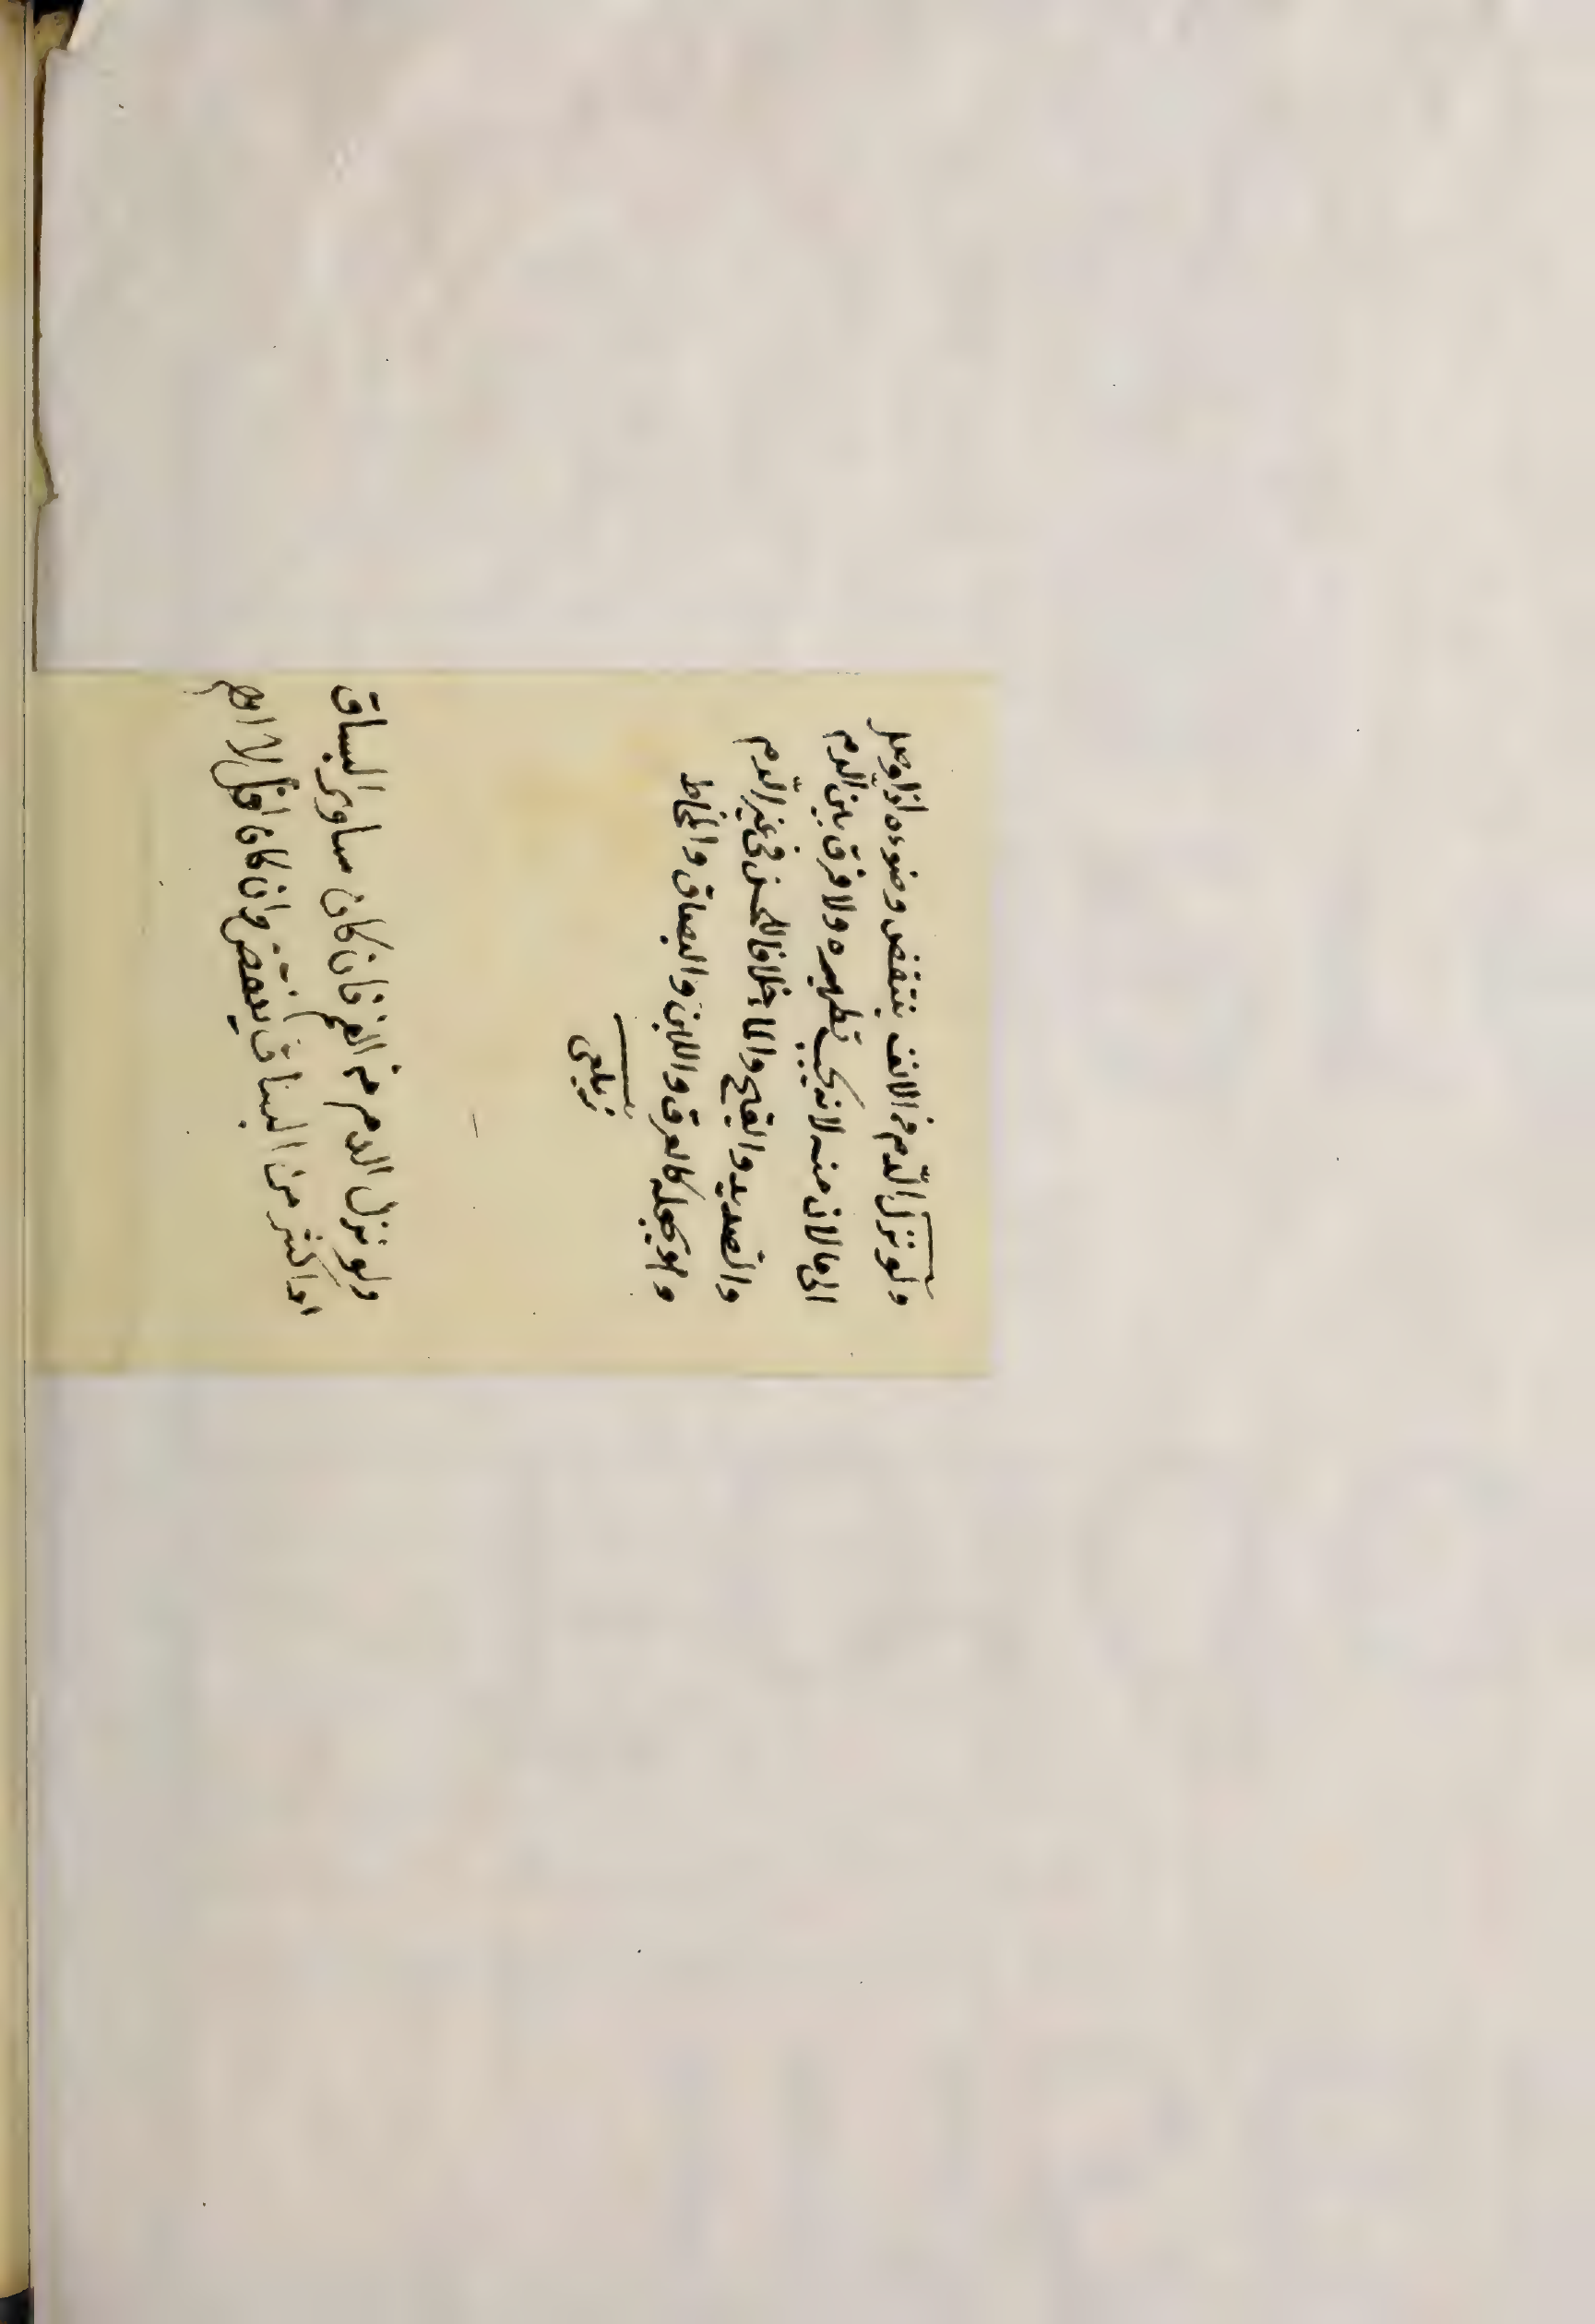 ولو نزل الدّم من الانف ينتقض وضوءه اذا وصل
الى ما لان منه لانه يجب تطهيره ولا فرق بين الدم
والصديد والقيح والماء خلافا للحسن فى غير الدّم
وهو يجعله كالعرق واللبن والبصاق والمخاط
زيلعى
ولو نزل الدم من الفم فان كان ساوى البساق
او اكثر من البساق ينقض وان كان اقل لا اھ